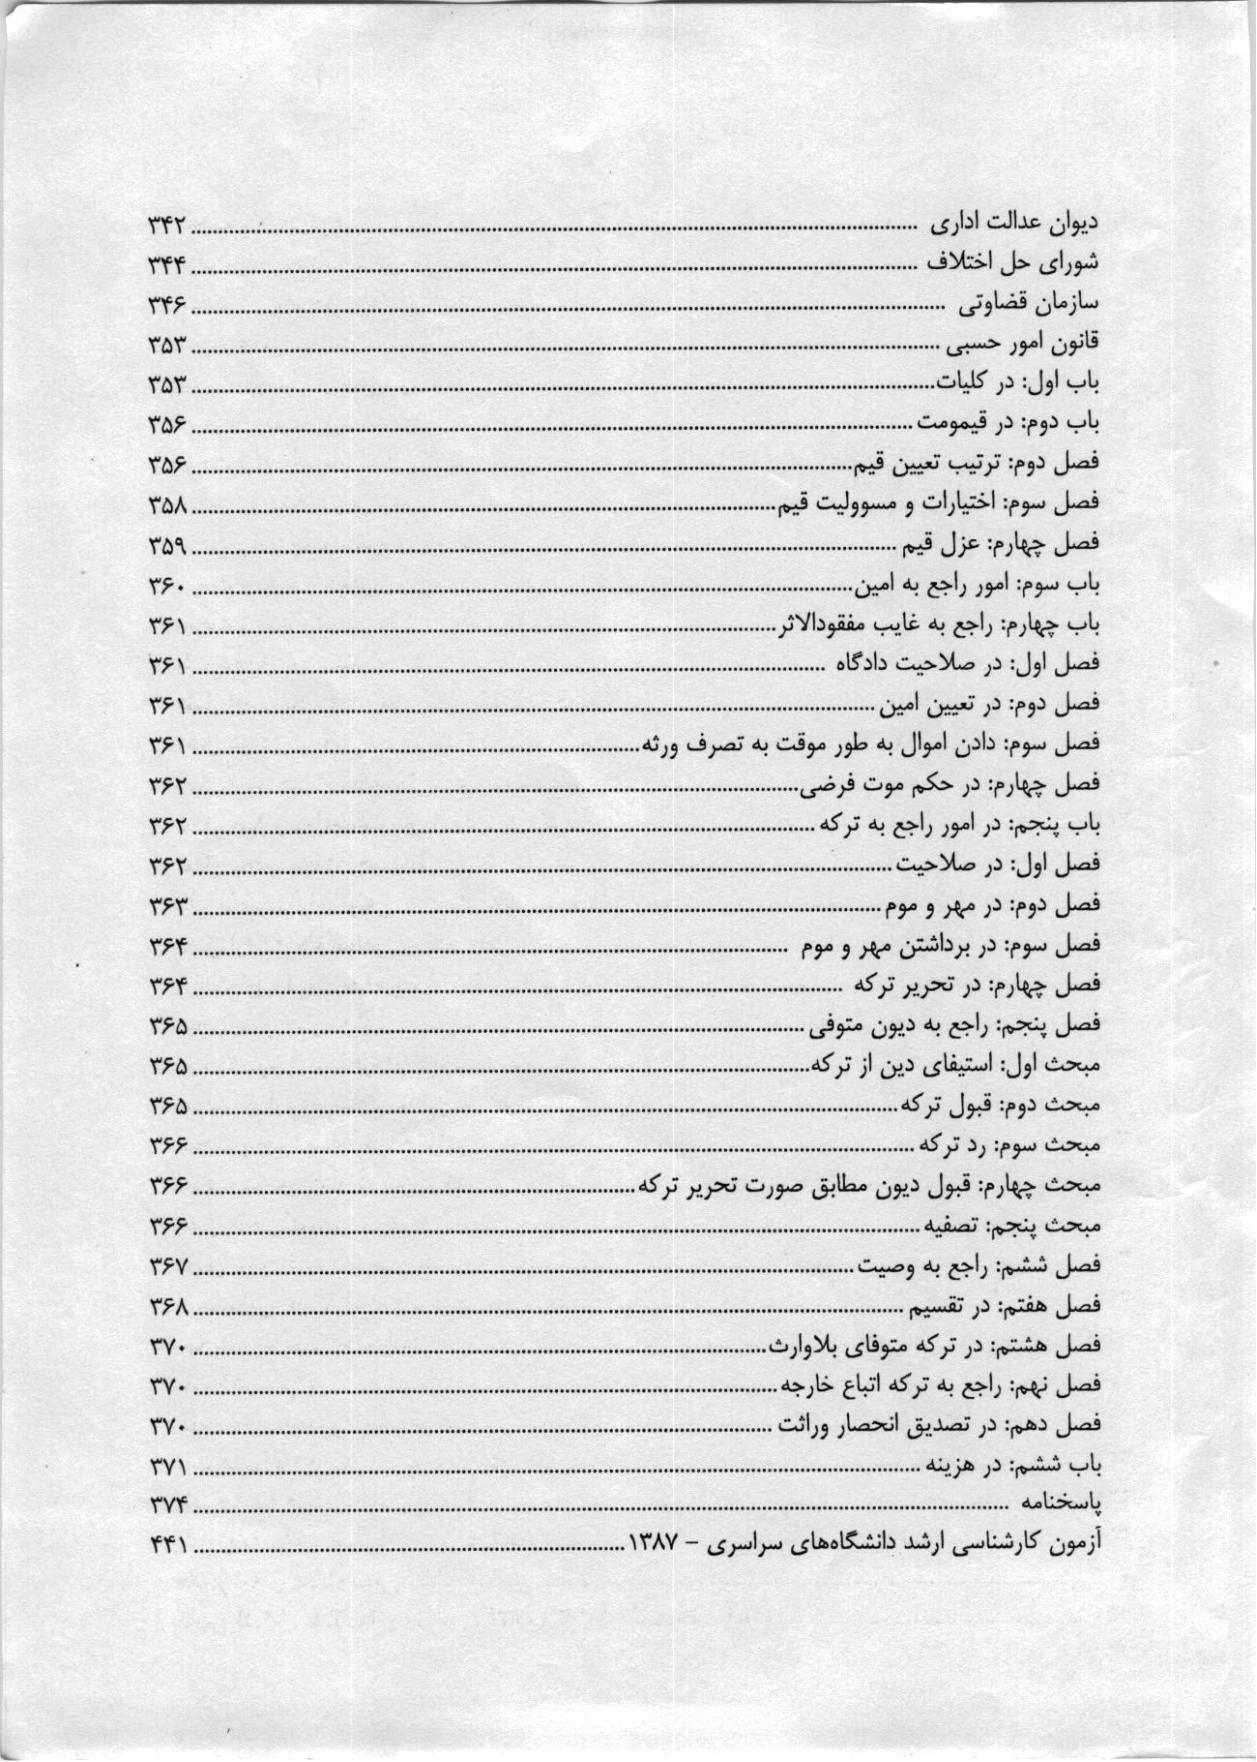 دیوان عدالت اداری ........ ۳۴۲
شورای حل اختلاف ........ ۳۴۴
سازمان قضاوتی ........ ۳۴۶
قانون امور حسبی ........ ۳۵۳
باب اول: در کلیات ........ ۳۵۳
باب دوم: در قیمومت ........ ۳۵۶
فصل دوم: ترتیب تعیین قیم ........ ۳۵۶
فصل سوم: اختیارات و مسوولیت قیم ........ ۳۵۸
فصل چهارم: عزل قیم ........ ۳۵۹
باب سوم: امور راجع به امین ........ ۳۶۰
باب چهارم: راجع به غایب مفقودالاثر ........ ۳۶۱
فصل اول: در صلاحیت دادگاه ........ ۳۶۱
فصل دوم: در تعیین امین ........ ۳۶۱
فصل سوم: دادن اموال به طور موقت به تصرف ورثه ........ ۳۶۱
فصل چهارم: در حکم موت فرضی ........ ۳۶۲
باب پنجم: در امور راجع به ترکه ........ ۳۶۲
فصل اول: در صلاحیت ........ ۳۶۲
فصل دوم: در مهر و موم ........ ۳۶۳
فصل سوم: در برداشتن مهر و موم ........ ۳۶۴
فصل چهارم: در تحریر ترکه ........ ۳۶۴
فصل پنجم: راجع به دیون متوفی ........ ۳۶۵
مبحث اول: استیفای دین از ترکه ........ ۳۶۵
مبحث دوم: قبول ترکه ........ ۳۶۵
مبحث سوم: رد ترکه ........ ۳۶۶
مبحث چهارم: قبول دیون مطابق صورت تحریر ترکه ........ ۳۶۶
مبحث پنجم: تصفیه ........ ۳۶۶
فصل ششم: راجع به وصیت ........ ۳۶۷
فصل هفتم: در تقسیم ........ ۳۶۸
فصل هشتم: در ترکه متوفای بلاوارث ........ ۳۷۰
فصل نهم: راجع به ترکه اتباع خارجه ........ ۳۷۰
فصل دهم: در تصدیق انحصار وراثت ........ ۳۷۰
باب ششم: در هزینه ........ ۳۷۱
پاسخنامه ........ ۳۷۴
آزمون کارشناسی ارشد دانشگاه‌های سراسری – ۱۳۸۷ ........ ۴۴۱